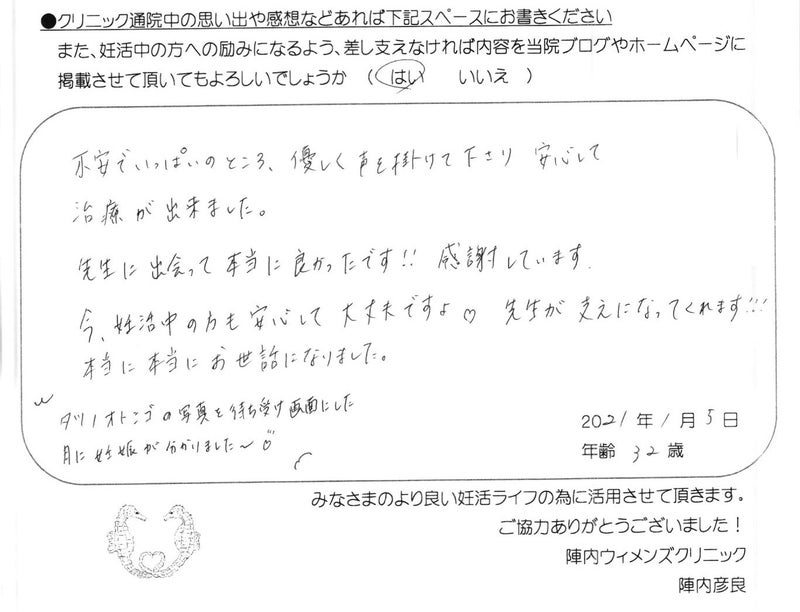 ●クリニック通院中の思い出や感想などあれば下記スペースにお書きください
また、妊活中の方への励みになるよう、差し支えなければ内容を当院ブログやホームページに
掲載させて頂いてもよろしいでしょうか （ はい いいえ ）
不安でいっぱいのところ、優しく声を掛けて下さり 安心して
治療が出来ました。
先生に出会って本当に良かったです!! 感謝しています.
今、妊活中の方も安心して大丈夫ですよ♡ 先生が支えになってくれます!!!
本当に本当にお世話になりました。
タツノオトシゴの写真を待ち受け画面にした
月に妊娠が分かりました〜♡
2021年1月5日
年齢 32歳
みなさまのより良い妊活ライフの為に活用させて頂きます。
ご協力ありがとうございました！
陣内ウィメンズクリニック
陣内彦良